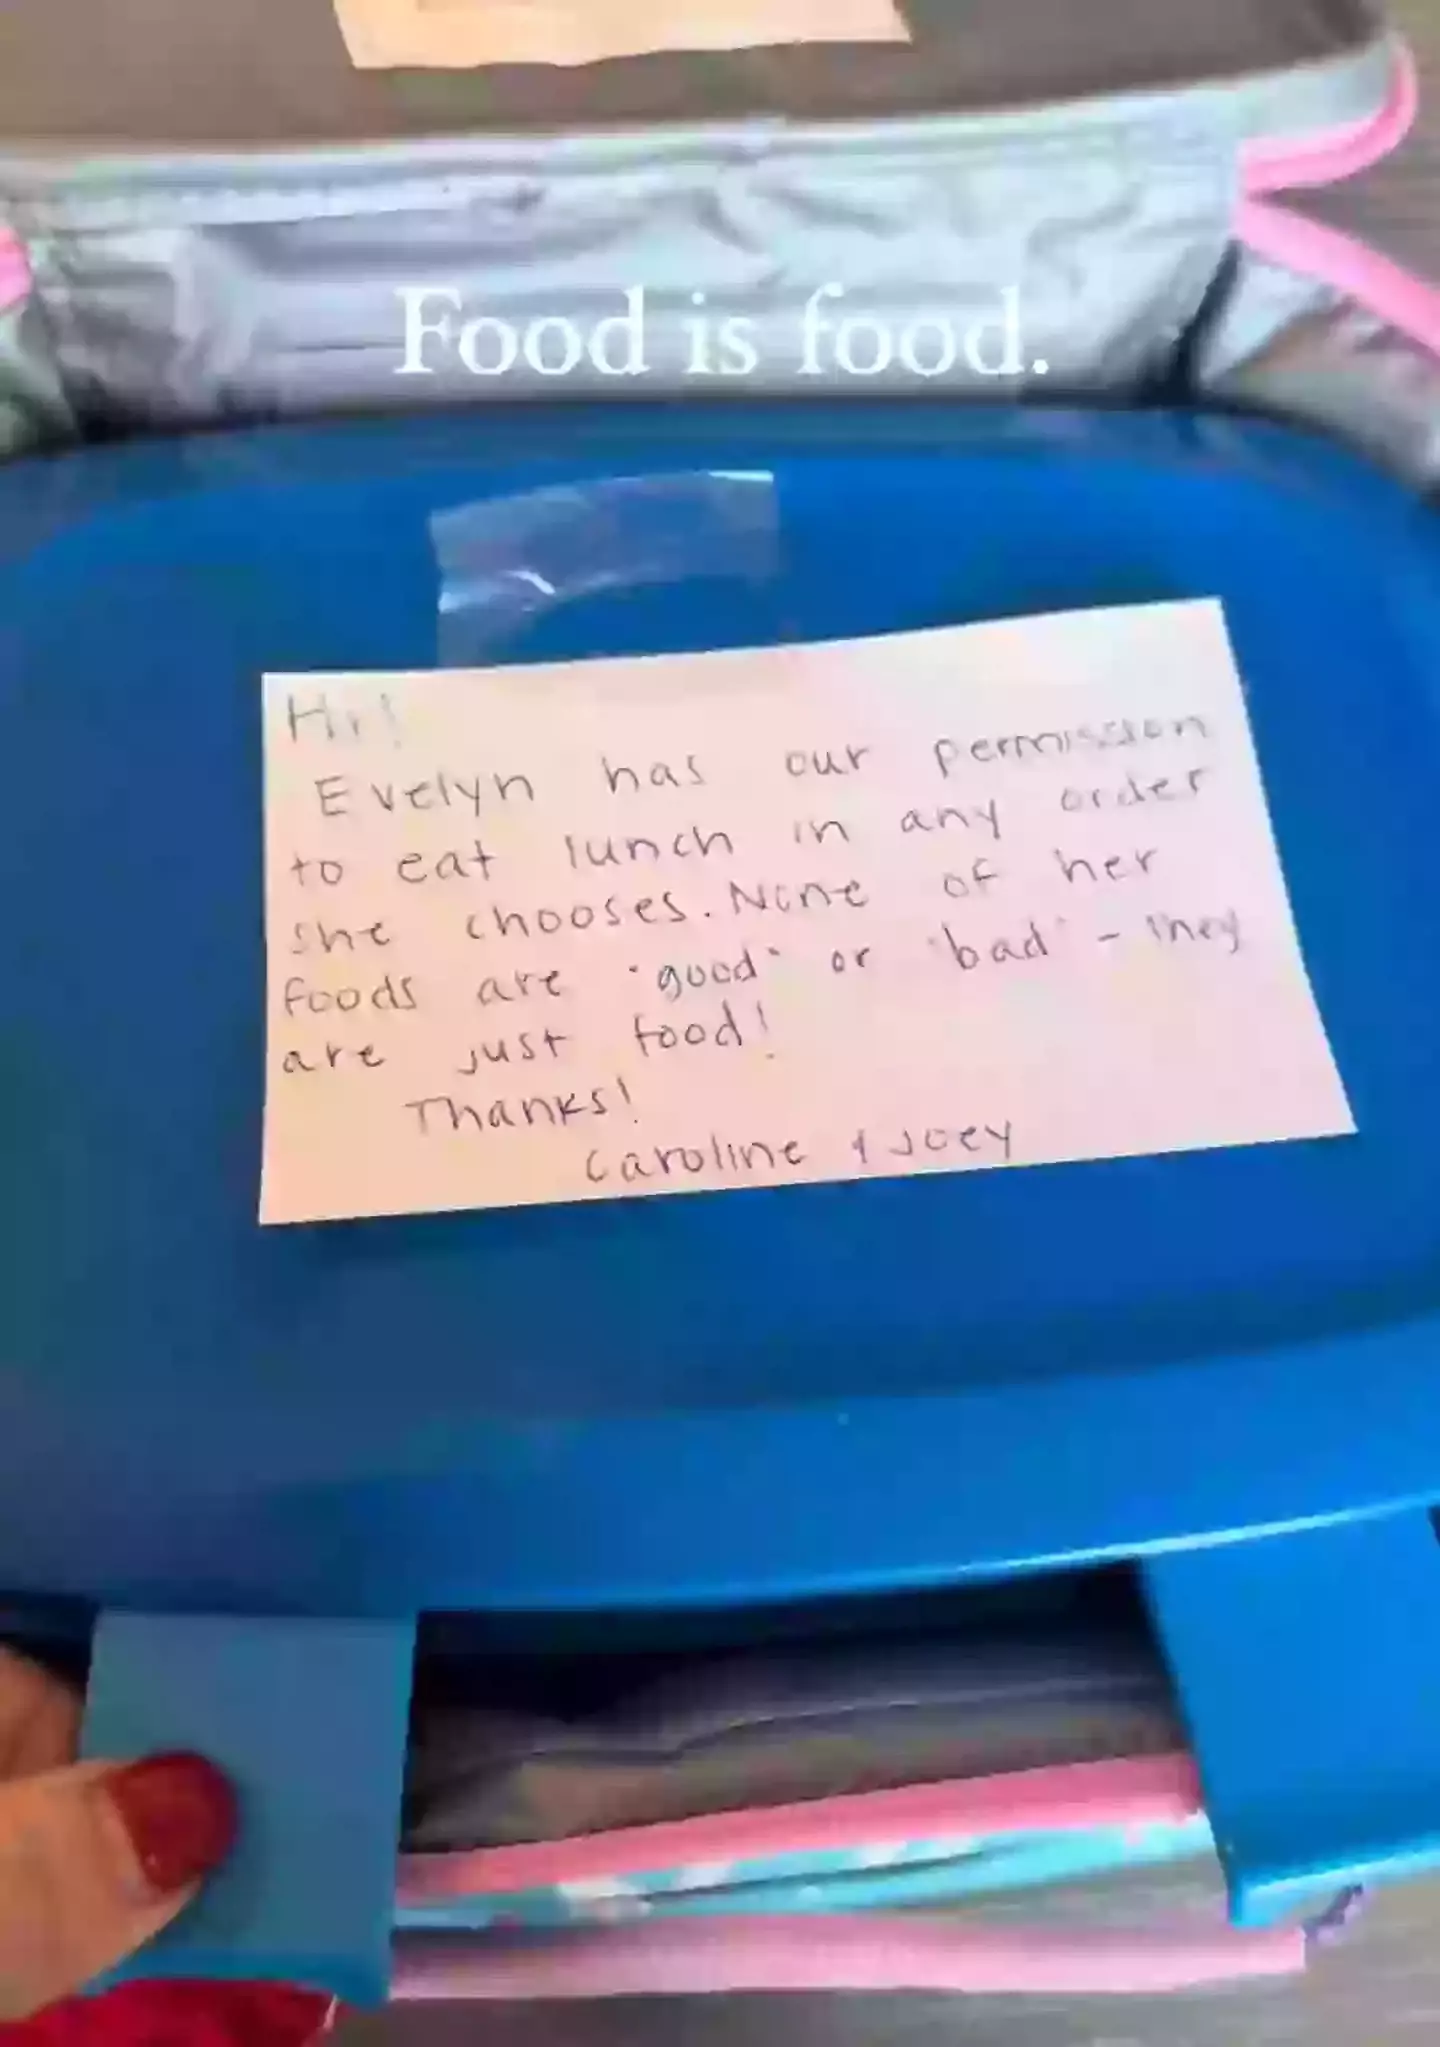 Food is food.
Hi!
Evelyn has our permission
to eat lunch in any order
she chooses. None of her
foods are "good" or "bad" - they
are just food!
Thanks!
Caroline & Joey